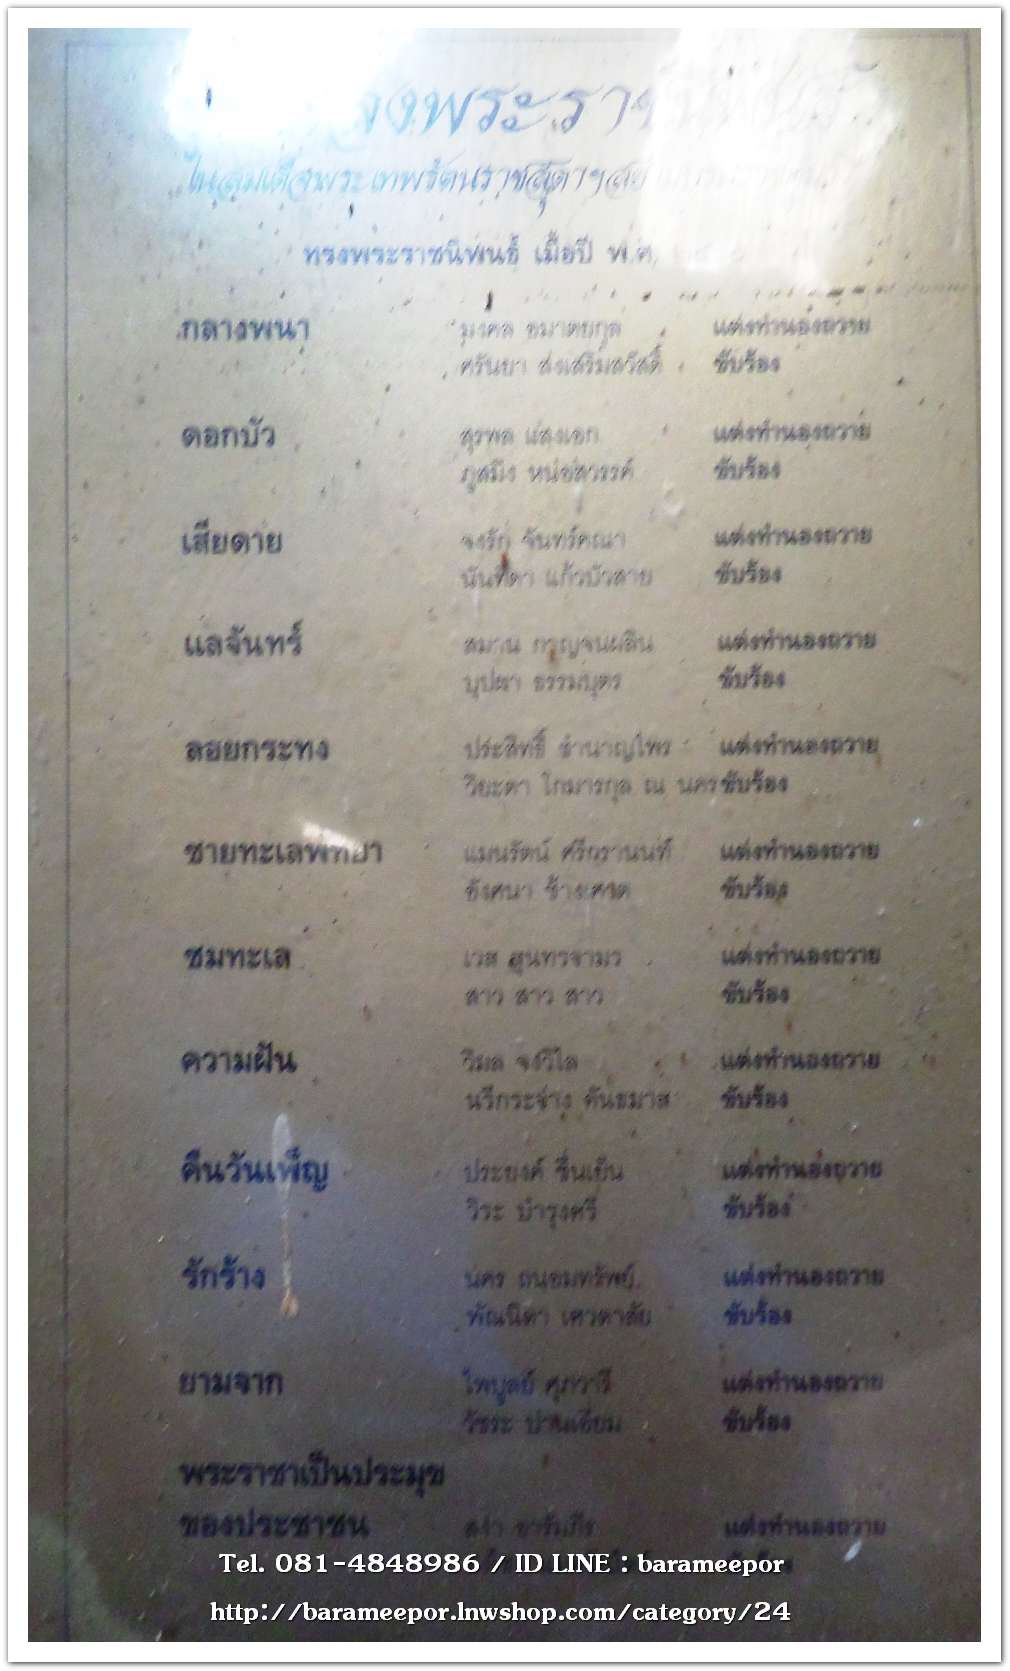 พระราช
ในสมเด็จพระเทพรัตนราชสุดาฯสยามบรมราชกุมารี
ทรงพระราชนิพนธ์ เมื่อปี พ.ศ.
กลางพนา มงคล อมาตยกุล แต่งทำนองถวาย
ศรันยา ส่งเสริมสวัสดิ์ ขับร้อง
ดอกบัว สุรพล แสงเอก แต่งทำนองถวาย
ภูสมิง หน่อสวรรค์ ขับร้อง
เสียดาย จงรัก จันทร์คณา แต่งทำนองถวาย
นันทิดา แก้วบัวสาย ขับร้อง
แลจันทร์ สมาน กาญจนผลิน แต่งทำนองถวาย
บุปผา ธรรมบุตร ขับร้อง
ลอยกระทง ประสิทธิ์ ชำนาญไพร แต่งทำนองถวาย
วิยะดา โกมารกุล ณ นคร ขับร้อง
ชายทะเลพัทยา แมนรัตน์ ศรีกรานนท์ แต่งทำนองถวาย
อังศนา ช้างเศวต ขับร้อง
ชมทะเล เวส สุนทรจามร แต่งทำนองถวาย
สาว สาว สาว ขับร้อง
ความฝัน วิมล จงวิไล แต่งทำนองถวาย
นรีกระจ่าง คันธมาส ขับร้อง
คืนวันเพ็ญ ประยงค์ ชื่นเย็น แต่งทำนองถวาย
วิระ บำรุงศรี ขับร้อง
รักร้าง นคร ถนอมทรัพย์ แต่งทำนองถวาย
พัณนิดา เศวตาสัย ขับร้อง
ยามจาก ไพบูลย์ ศุภวารี แต่งทำนองถวาย
วัชระ ปานเอี่ยม ขับร้อง
พระราชาเป็นประมุข
ของประชาชน สง่า อารัมภีร แต่งทำนองถวาย
Tel. 081-4848986 / ID LINE : barameepor
http://barameepor.lnwshop.com/category/24